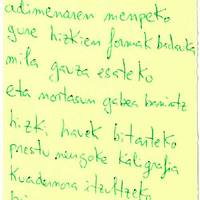 adimenaren menpeko
gure hizkien formak badauka
mila gauza esateko
eta nortasun gabea banintz
hizki hauek bitarteko
prestu nengoke kaligrafia
kuadernora itzultzeko